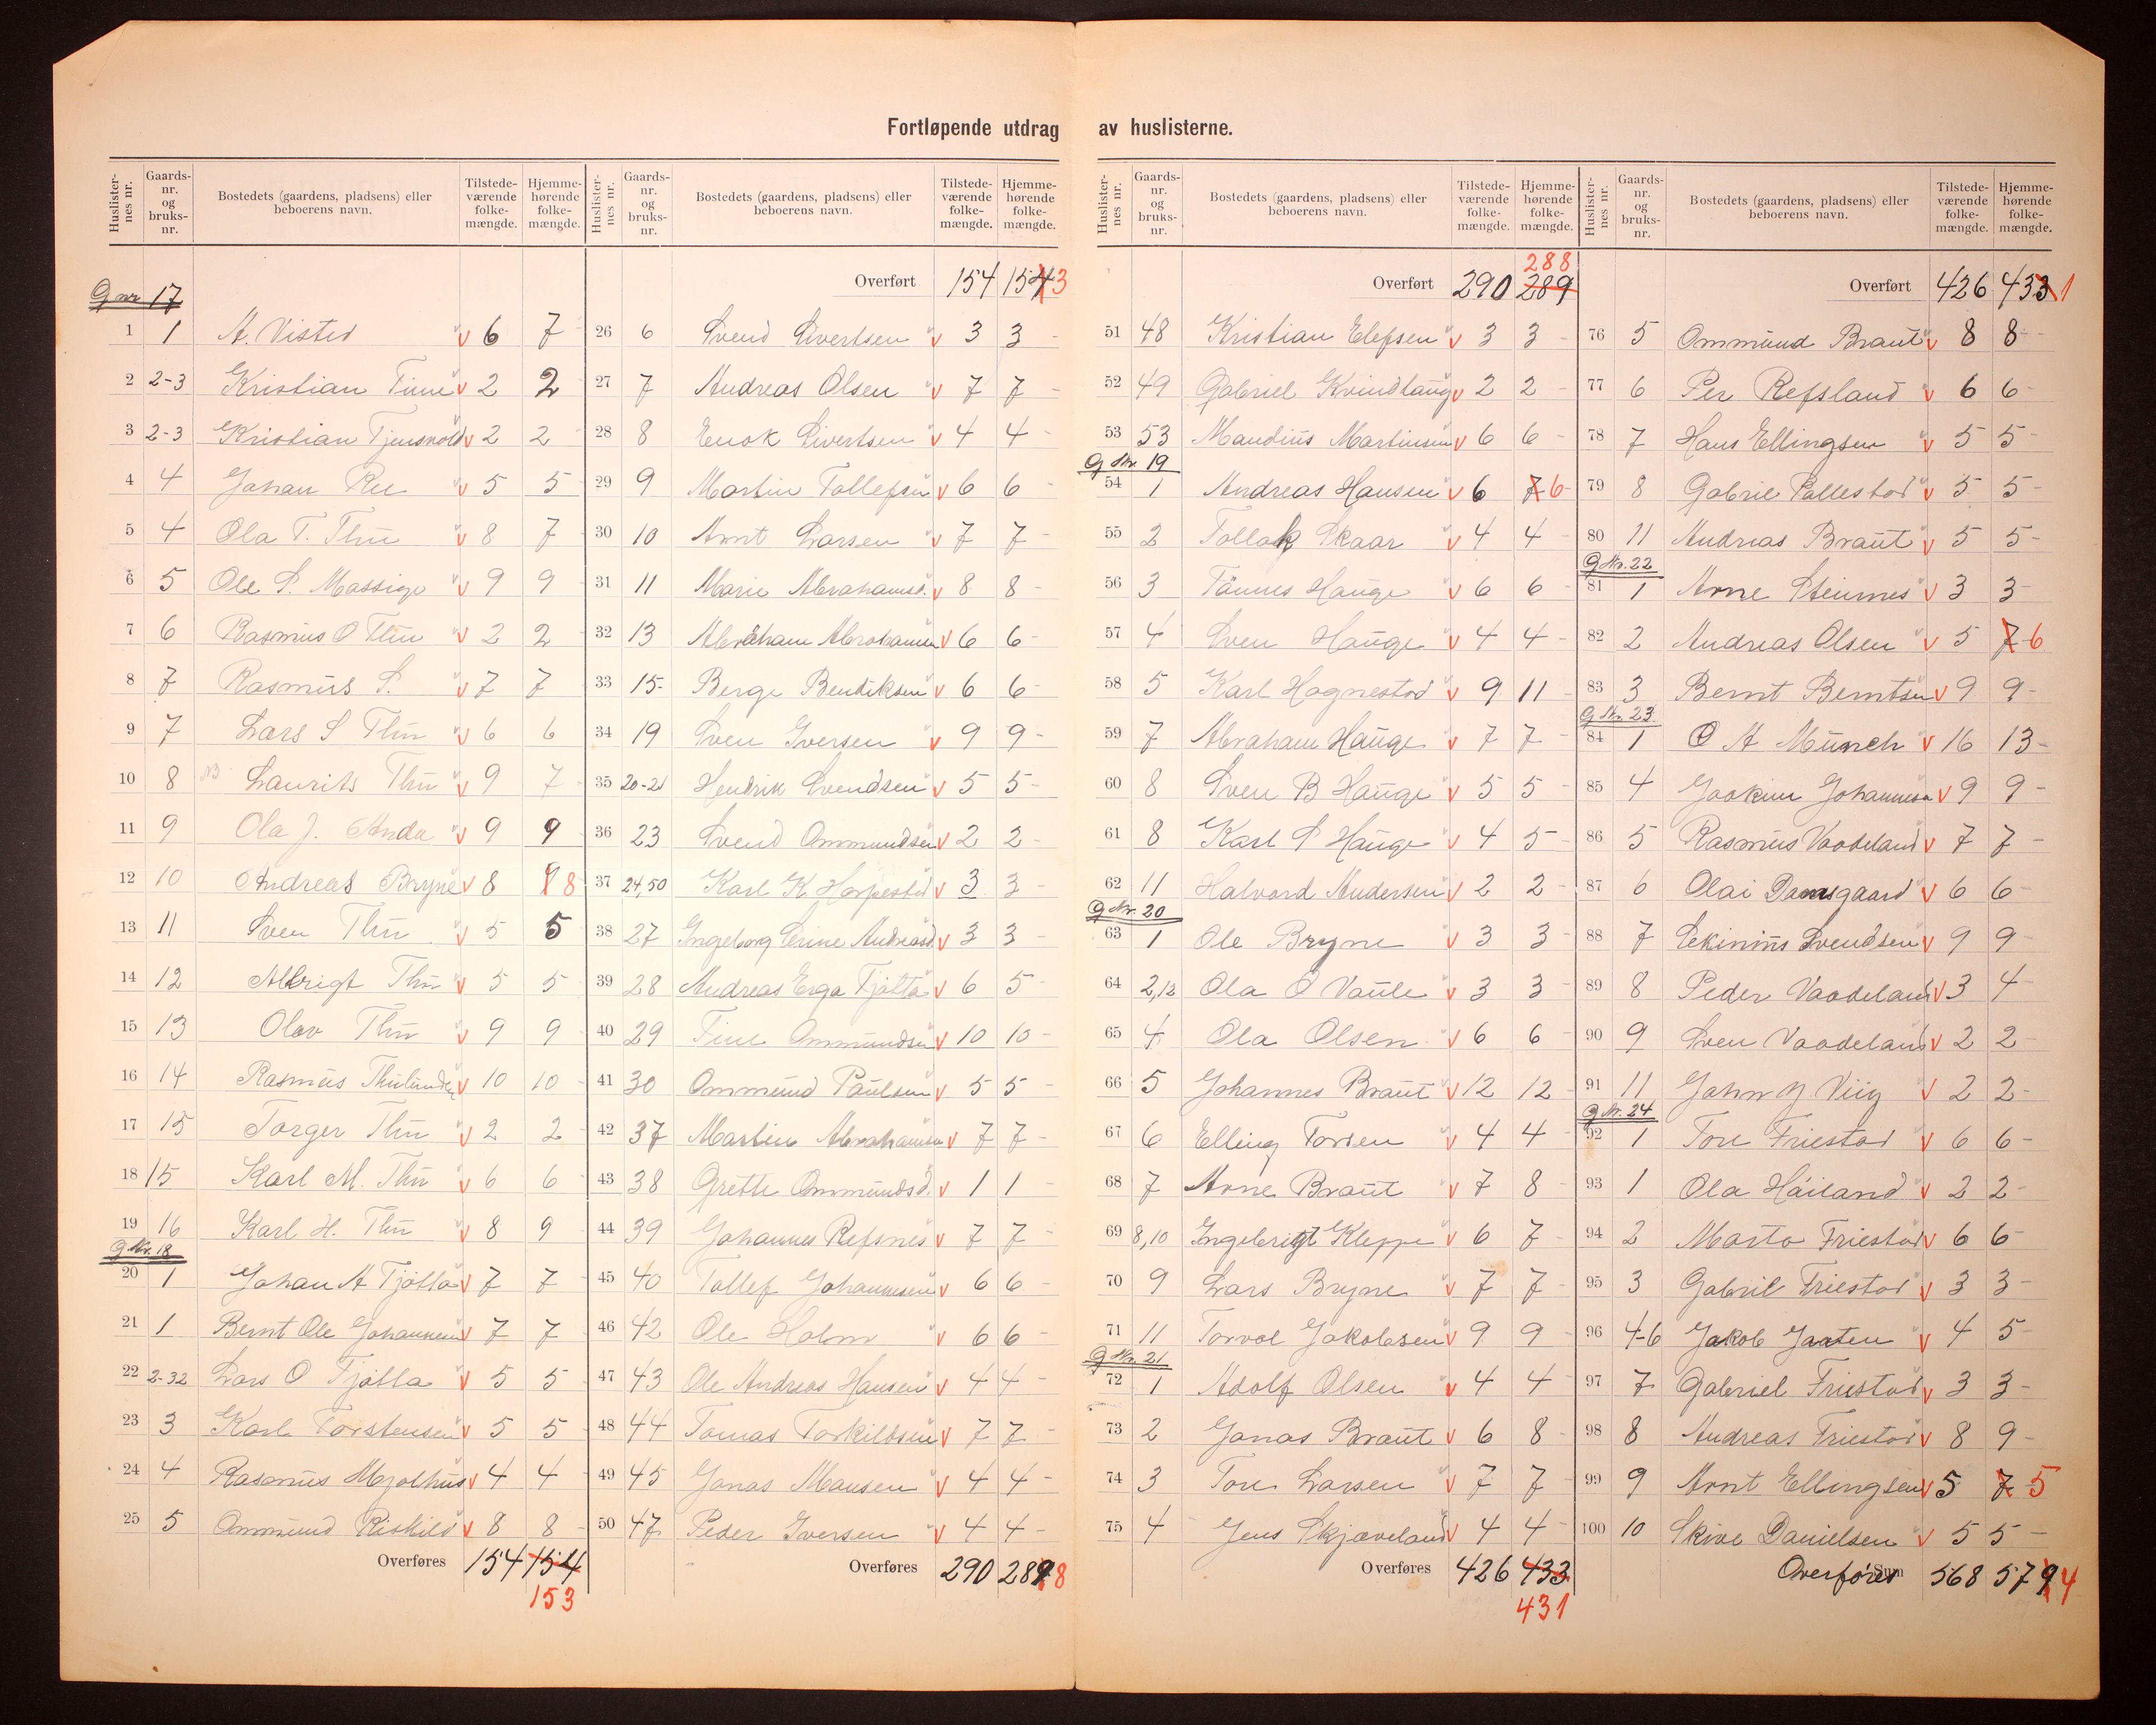 Fortløpende utdrag av huslisterne.
Huslister-nes nr. Gaards-nr. og bruks-nr. Bostedets (gaardens, pladsens) eller beboerens navn. Tilstede-værende folke-mængde. Hjemme-hørende folke-mængde.
G nr 17
1 1 A. Visted v 6 7
2 2-3 Kristian Time v 2 2
3 2-3 Kristian Tjensvold v 2 2
4 4 Johan Ree v 5 5
5 4 Ola T. Thu v 8 7
6 5 Ole S. Massige v 9 9
7 6 Rasmus O Thu v 2 2
8 7 Rasmus S. v 7 7
9 7 Lars S Thu v 6 6
10 8 NB Laurits Thu v 9 7
11 9 Ola J. Anda v 9 9
12 10 Andreas Bryne v 8 9 8
13 11 Sven Thu v 5 5
14 12 Albrigt Thu v 5 5
15 13 Olav Thu v 9 9
16 14 Rasmus Thulunden v 10 10
17 15 Torger Thu v 2 2
18 15 Karl M. Thu v 6 6
19 16 Karl H. Thu v 8 9
G Nr. 18
20 1 Johan A Tjøtta v 7 7
21 1 Bernt Ole Johannesen v 7 7
22 2-32 Lars O Tjøtta v 5 5
23 3 Karl Torstensen v 5 5
24 4 Rasmus Mjølhus v 4 4
25 5 Ommund Riskild v 8 8
Overføres 154 154
153
Huslister-nes nr. Gaards-nr. og bruks-nr. Bostedets (gaardens, pladsens) eller beboerens navn. Tilstede-værende folke-mængde. Hjemme-hørende folke-mængde.
Overført 154 154 3
26 6 Svend Sivertsen v 3 3
27 7 Andreas Olsen v 7 7
28 8 Enok Sivertsen v 4 4
29 9 Martin Tollefsen v 6 6
30 10 Arnt Larsen v 7 7
31 11 Marie Abrahamsd. v 8 8
32 13 Abraham Abrahamsen v 6 6
33 15 Berge Bendiksen v 6 6
34 19 Sven Iversen v 9 9
35 20-21 Hendrik Svendsen v 5 5
36 23 Svend Ommundsen v 2 2
37 24,50 Karl K Harpestad v 3 3
38 27 Ingeborg Serine Andreasd. v 3 3
39 28 Andreas Erga Tjøtta v 6 5
40 29 Tine Ommundsen v 10 10
41 30 Ommund Paulsen v 5 5
42 37 Martin Abrahamsen v 7 7
43 38 Grette Ommundsd. v 1 1
44 39 Johannes Refsnes v 7 7
45 40 Tollef Johannesen v 6 6
46 42 Ole Holm v 6 6
47 43 Ole Andreas Hansen v 4 4
48 44 Tomas Torkildsen v 7 7
49 45 Jonas Mausen v 4 4
50 47 Peder Iversen v 4 4
Overføres 290 289 8
Huslister-nes nr. Gaards-nr. og bruks-nr. Bostedets (gaardens, pladsens) eller beboerens navn. Tilstede-værende folke-mængde. Hjemme-hørende folke-mængde.
288
Overført 290 289
51 48 Kristian Elefsen v 3 3
52 49 Gabriel Kvindlaug v 2 2
53 53 Maudius Martinsen v 6 6
G Nr. 19
54 1 Andreas Hansen v 6 7 6
55 2 Tollak Skaar v 4 4
56 3 Tønnes Hauge v 6 6
57 4 Sven Hauge v 4 4
58 5 Karl Hognestad v 9 11
59 7 Abraham Hauge v 7 7
60 8 Sven B Hauge v 5 5
61 8 Karl S Hauge v 4 5
62 11 Halvard Andersen v 2 2
G Nr. 20
63 1 Ole Bryne v 3 3
64 2,12 Ola O Vaule v 3 3
65 4 Ola Olsen v 6 6
66 5 Johannes Braut v 12 12
67 6 Elling Torsen v 4 4
68 7 Arne Braut v 7 8
69 8,10 Ingebrigt Kleppe v 6 7
70 9 Lars Bryne v 7 7
71 11 Torvol Jakobsen v 9 9
G Nr. 21
72 1 Adolf Olsen v 4 4
73 2 Jonas Braut v 6 8
74 3 Tore Larsen v 7 7
75 4 Jens Skjæveland v 4 4
Overføres 426 433
431
Huslister-nes nr. Gaards-nr. og bruks-nr. Bostedets (gaardens, pladsens) eller beboerens navn. Tilstede-værende folke-mængde. Hjemme-hørende folke-mængde.
Overført 426 433 1
76 5 Ommund Braut v 8 8
77 6 Per Refsland v 6 6
78 7 Hans Ellingsen v 5 5
79 8 Gabriel Pallestad v 5 5
80 11 Andreas Braut v 5 5
G Nr. 22
81 1 Arne Steinnes v 3 3
82 2 Andreas Olsen v 5 7 6
83 3 Bernt Berntsen v 9 9
G Nr. 23
84 1 O A Munch v 16 13
85 4 Joakim Johannesen v 9 9
86 5 Rasmus Vaadeland v 7 7
87 6 Olai Damsgaard v 6 6
88 7 Sekinius Svendsen v 9 9
89 8 Peder Vaadeland v 3 4
90 9 Sven Vaadeland v 2 2
91 11 John J Viig v 2 2
G Nr. 24
92 1 Tore Friestad v 6 6
93 1 Ola Høiland v 2 2
94 2 Marta Friestad v 6 6
95 3 Gabriel Friestad v 3 3
96 4-6 Jakob Jaaten v 4 5
97 7 Gabriel Friestad v 3 3
98 8 Andreas Friestad v 8 9
99 9 Arnt Ellingsen v 5 7 5
100 10 Skive Danielsen v 5 5
Overføres Sum 568 579 4